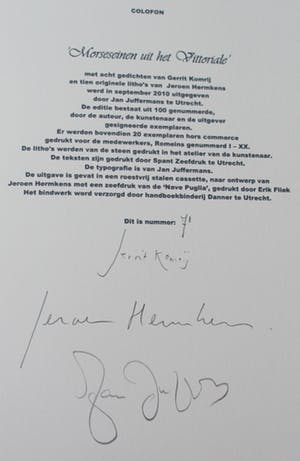 COLOFON
'Morseseinen uit het Vittoriale'
met acht gedichten van Gerrit Komrij
en tien originele litho's van Jeroen Hermkens
werd in september 2010 uitgegeven
door Jan Juffermans te Utrecht.
De editie bestaat uit 100 genummerde,
door de auteur, de kunstenaar en de uitgever
gesigneerde exemplaren.
Er werden bovendien 20 exemplaren hors commerce
gedrukt voor de medewerkers, Romeins genummerd I – XX.
De litho's werden van de steen gedrukt in het atelier van de kunstenaar.
De teksten zijn gedrukt door Spant Zeefdruk te Utrecht.
De typografie is van Jan Juffermans.
De uitgave is gevat in een roestvrij stalen cassette, naar ontwerp van
Jeroen Hermkens met een zeefdruk van de 'Nave Puglia', gedrukt door Erik Fliek
Het bindwerk werd verzorgd door handboekbinderij Danner te Utrecht.
Dit is nummer: 71
Gerrit Komrij
Jeroen Hermkens.